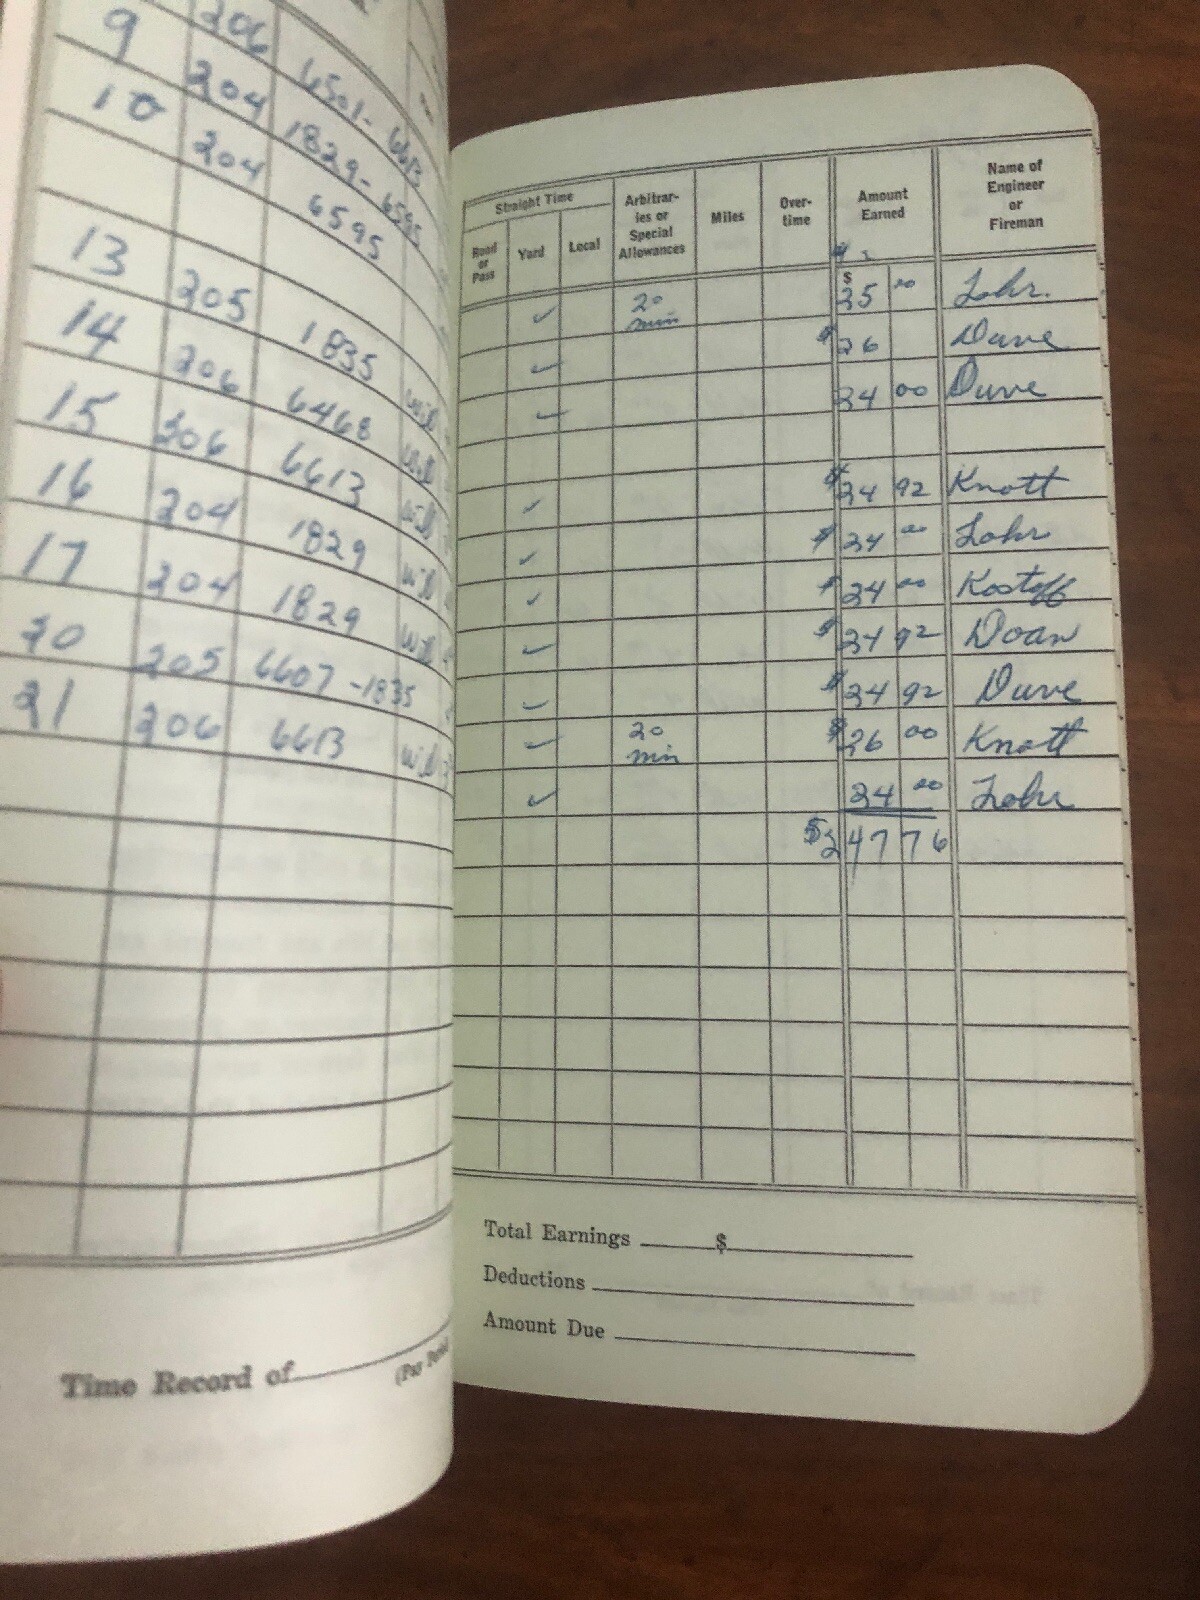 206 6501- 6613
9 204 1829- 6595
10 204 6595
13 205 1835
14 206 6468 will
15 306 6613 will
16 204 1829 will
17 204 1829 will
20 205 6607 -1835
21 206 6613 will
Time Record of
(Pay Period
Straight Time
Road or Pass
Yard
Local
Arbitrar-
ies or
Special
Allowances
Miles
Over-
time
Amount
Earned
Name of
Engineer
or
Fireman
✓ 20 min $ 25 00 Lohr.
✓ $ 26 Duve
✓ 24 00 Duve
✓ $ 24 92 Knott
✓ $ 24 00 Lohr
✓ $ 24 00 Kostoff
✓ $ 24 92 Doan
✓ $ 24 92 Duve
✓ 20 min $ 26 00 Knott
✓ 24 00 Lohr
$247 76
Total Earnings $
Deductions
Amount Due